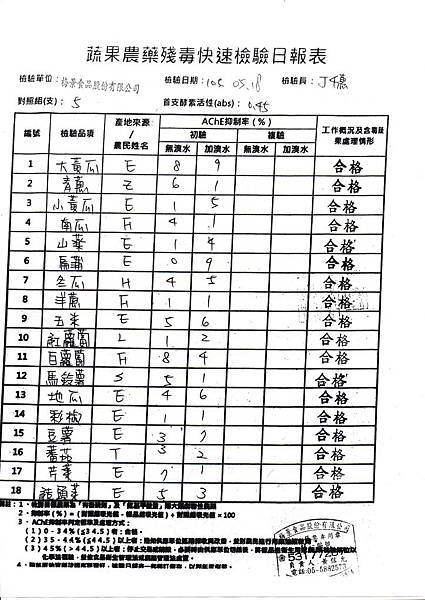 蔬果農藥殘毒快速檢驗日報表
檢驗單位: 梅景食品股份有限公司 檢驗日期:105. 05.18 檢驗員:
對照組(支): 5 首支酵素活性(abs): 0.45
編號 檢驗品項 產地來源/農民姓名 AChE抑制率(%) 工作概況及含毒蔬果處理情形
初驗 複驗
無溴水 加溴水 無溴水 加溴水
1 大黃瓜 E 8 9 合格
2 青蔥 Z 6 1 合格
3 小黃瓜 E 1 5 合格
4 南瓜 H 4 1 合格
5 山藥 E 1 4 合格
6 扁蒲 E 0 9 合格
7 冬瓜 H 4 5 合格
8 洋蔥 H 1 1 合格
9 玉米 E 5 6 合格
10 紅蘿蔔 L 1 2 合格
11 白蘿蔔 H 8 4 合格
12 馬鈴薯 S 5 1 合格
13 地瓜 E 4 6 合格
14 彩椒 E 1 1 合格
15 豆薯 E 3 7 合格
16 蕃茄 T 3 2 合格
17 芹菜 E 7 1 合格
18 結頭菜 E 5 3 合格
2、抑制率(%)=
×100
3、AChE抑制率判定標準及處理方式:
(1) 0-34% (≦34.5) 者:合格。
(2) 35-44% (≦44.5) 以上者:
(3) 45% (>44.5) 以上者:
梅景食品股份有限公司